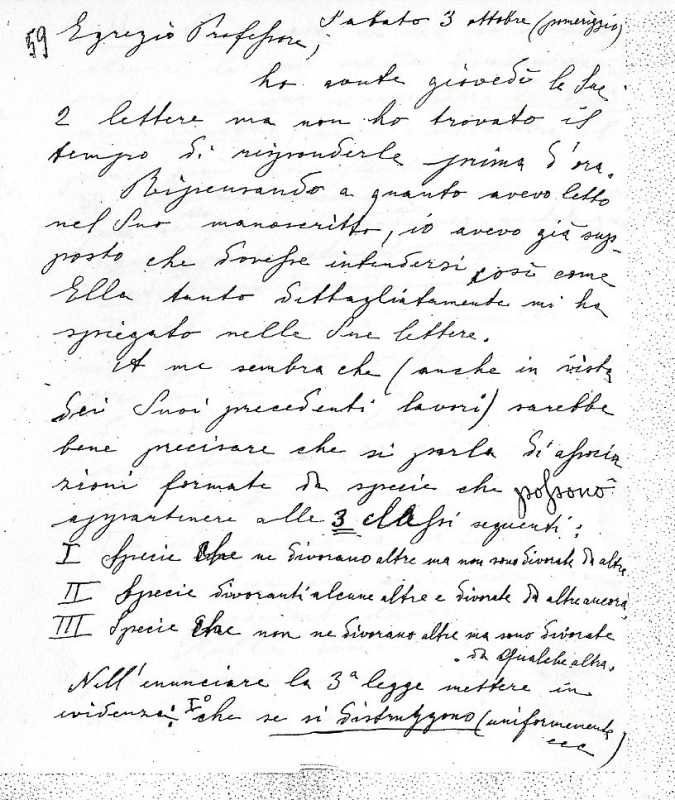 59
Sabato 3 ottobre (pomeriggio)
Egregio Professore,
ho avute giovedì le Sue
2 lettere ma non ho trovato il
tempo di risponderle prima d'ora.
Ripensando a quanto avevo letto
nel Suo manoscritto, io avevo già sup-
posto che dovesse intendersi così come
Ella tanto dettagliatamente mi ha
spiegato nelle Sue lettere.
A me sembra che (anche in vista
dei Suoi precedenti lavori) sarebbe
bene precisare che si parla di associa
zioni formate da specie che possono
appartenere alle 3 classi seguenti:
I Specie che ne divorano altre ma non sono divorate da altre
II Specie divoranti alcune altre e divorate da altre ancora,
III Specie che non ne divorano altre ma sono divorate
da qualche altra.
Nell'enunciare la 3ª legge mettere in
evidenza: I° che se si distruggono (uniformemente
ecc)